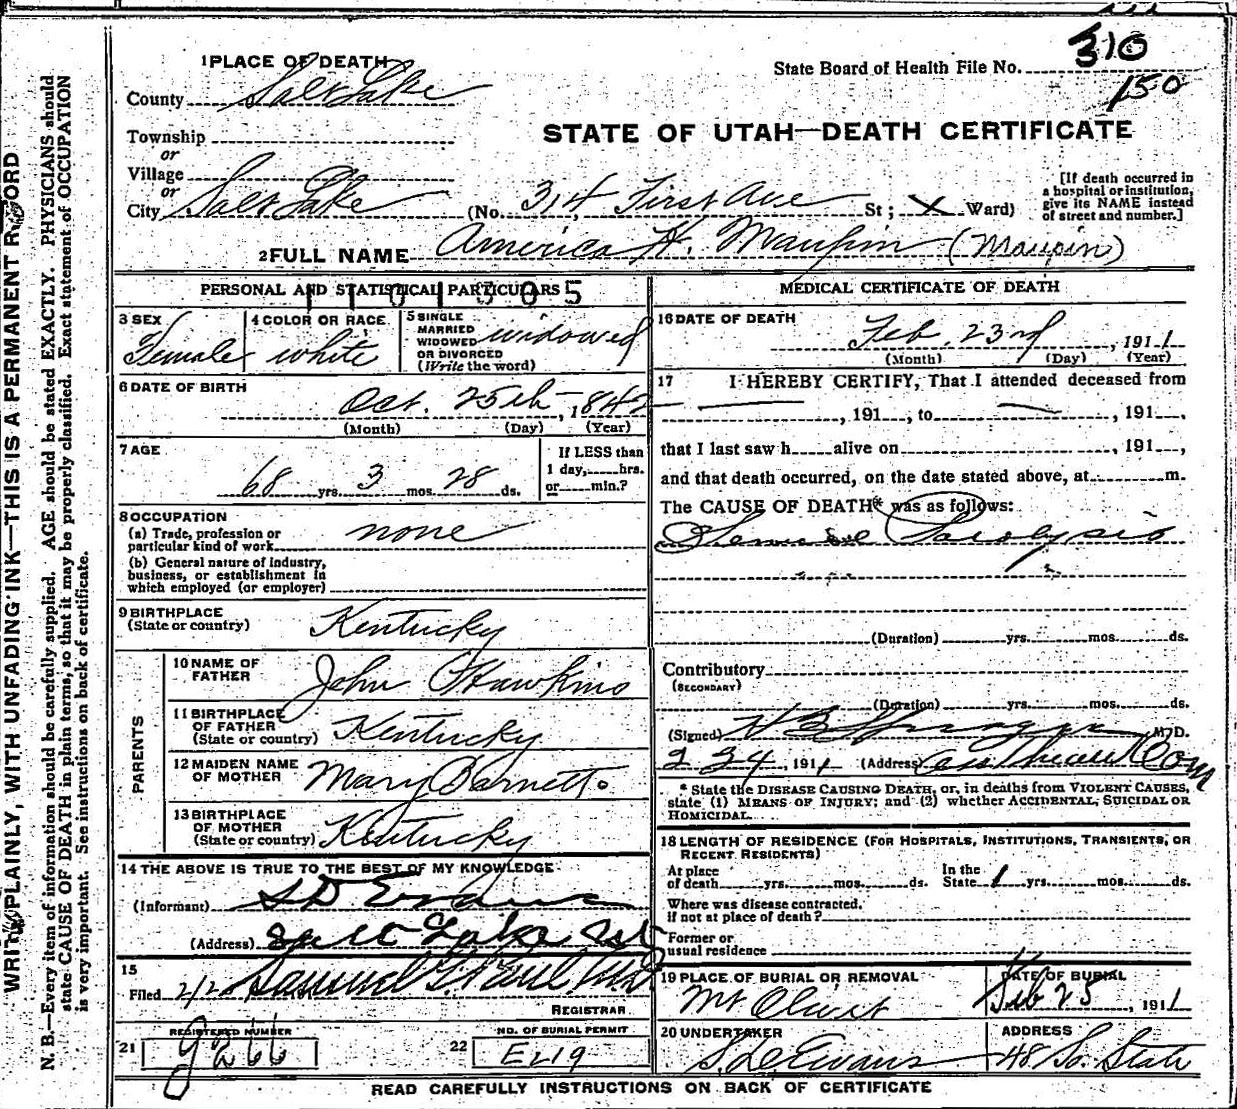 310
150
1 PLACE OF DEATH
State Board of Health File No.
County Salt Lake
STATE OF UTAH—DEATH CERTIFICATE
Township
or
Village
or
City Salt Lake (No. 314 First Ave St; X Ward)
[If death occurred in
a hospital or institution,
give its NAME instead
of street and number.]
2 FULL NAME America H. Maupin (Maupin)
PERSONAL AND STATISTICAL PARTICULARS
3 SEX Female
4 COLOR OR RACE white
5 SINGLE
MARRIED
WIDOWED
OR DIVORCED
(Write the word) widowed
6 DATE OF BIRTH
Oct. 25th, 1842
(Month) (Day) (Year)
7 AGE
68 yrs. 3 mos. 28 ds.
If LESS than
1 day, hrs.
or min.?
8 OCCUPATION
(a) Trade, profession or
particular kind of work none
(b) General nature of Industry,
business, or establishment in
which employed (or employer)
9 BIRTHPLACE
(State or country) Kentucky
PARENTS
10 NAME OF
FATHER John Hawkins
11 BIRTHPLACE
OF FATHER
(State or country) Kentucky
12 MAIDEN NAME
OF MOTHER Mary Barnett
13 BIRTHPLACE
OF MOTHER
(State or country) Kentucky
14 THE ABOVE IS TRUE TO THE BEST OF MY KNOWLEDGE
(Informant) S D Evans
(Address) Salt Lake City
15
Filed
REGISTRAR
REGISTERED NUMBER
21 g266
NO. OF BURIAL PERMIT
22 E219
MEDICAL CERTIFICATE OF DEATH
16 DATE OF DEATH
Feb. 23rd, 1911
(Month) (Day) (Year)
17 I HEREBY CERTIFY, That I attended deceased from
, 191 , to , 191 ,
that I last saw h alive on , 191 ,
and that death occurred, on the date stated above, at m.
The CAUSE OF DEATH* was as follows:
Paralysis
(Duration) yrs. mos. ds.
Contributory
(SECONDARY)
(Duration) yrs. mos. ds.
(Signed) M. D.
2 24, 1911 (Address)
* State the DISEASE CAUSING DEATH, or, in deaths from VIOLENT CAUSES,
state (1) MEANS OF INJURY; and (2) whether ACCIDENTAL, SUICIDAL OR
HOMICIDAL.
18 LENGTH OF RESIDENCE (FOR HOSPITALS, INSTITUTIONS, TRANSIENTS, OR
RECENT RESIDENTS)
At place
of death yrs. mos. ds.
In the
State 1 yrs. mos. ds.
Where was disease contracted.
if not at place of death?
Former or
usual residence
19 PLACE OF BURIAL OR REMOVAL
Mt Olivet
DATE OF BURIAL
Feb 25, 1911
20 UNDERTAKER
S. D. Evans
ADDRESS
48 So. State
READ CAREFULLY INSTRUCTIONS ON BACK OF CERTIFICATE
WRITE PLAINLY, WITH UNFADING INK—THIS IS A PERMANENT RECORD
N. B.—Every item of information should be carefully supplied. AGE should be stated EXACTLY. PHYSICIANS should
state CAUSE OF DEATH in plain terms, so that it may be properly classified. Exact statement of OCCUPATION
is very important. See instructions on back of certificate.